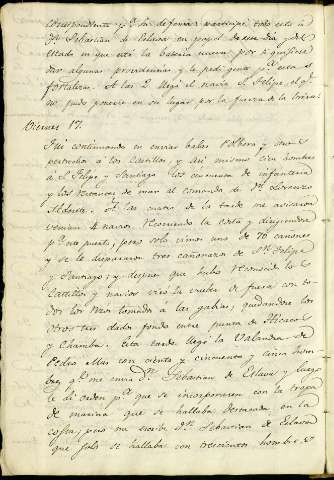 correspondiente pª su defensa participé todo esto á
Dn. Sebastian de Eslava en papel de este dia, y del
estado en que está la bateria nueva por si quisiese
dar algunas providencias y le pedi gente pª esta
fortaleza. A las 2 llegó el navio S. Felipe, el qe
no pudo ponerse en su lugar por la fuerza de la brisa.
Viernes 17.
Fui continuando en enviar balas polbora y mas
pertrechos á los Castillos, y asi mismo cien hombres
á S. Felipe y Santiago los cincuenta de infanteria
y los restantes de mar al comando de Dn. Lorenzo
Alderete. A las cuatro de la tarde me avisaron
venian 4 navios recorriendo la costa y dirigiendose
pª este puerto, pero solo vimos uno de 70 cañones
y se le dispararon tres cañonazos de Sn. Felipe
y Santiago; y despues que hubo reconocido los
Castillos y navios viró la vuelta de fuera con to-
dos los rizos tomados á las gabias, quedandose los
otros tres dados fondo entre punta de Hicacos
y Chamba. Esta tarde llegó la Balandra de
Pedro Mas con ciento y cincuenta y cinco hom-
bres qe me envia Dn. Sebastian de Eslava y luego
le di orden pª que se incorporasen con la tropa
de marina que se hallaba destacada en la
costa; pero me escribe Dn. Sebastian de Eslava
que solo se hallaba con trescientos hombres